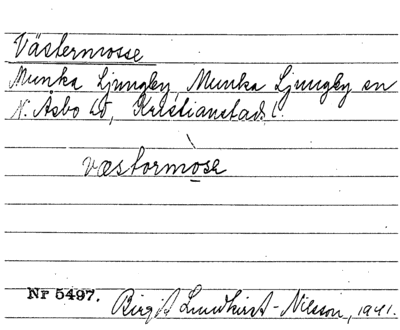 Västermosse
Munka Ljungby, Munka Ljungby sn
N. Åsbo hd, Kristianstads l.
væstormose
Nr 5497. Birgit Lundkvist-Nilsson, 1941.